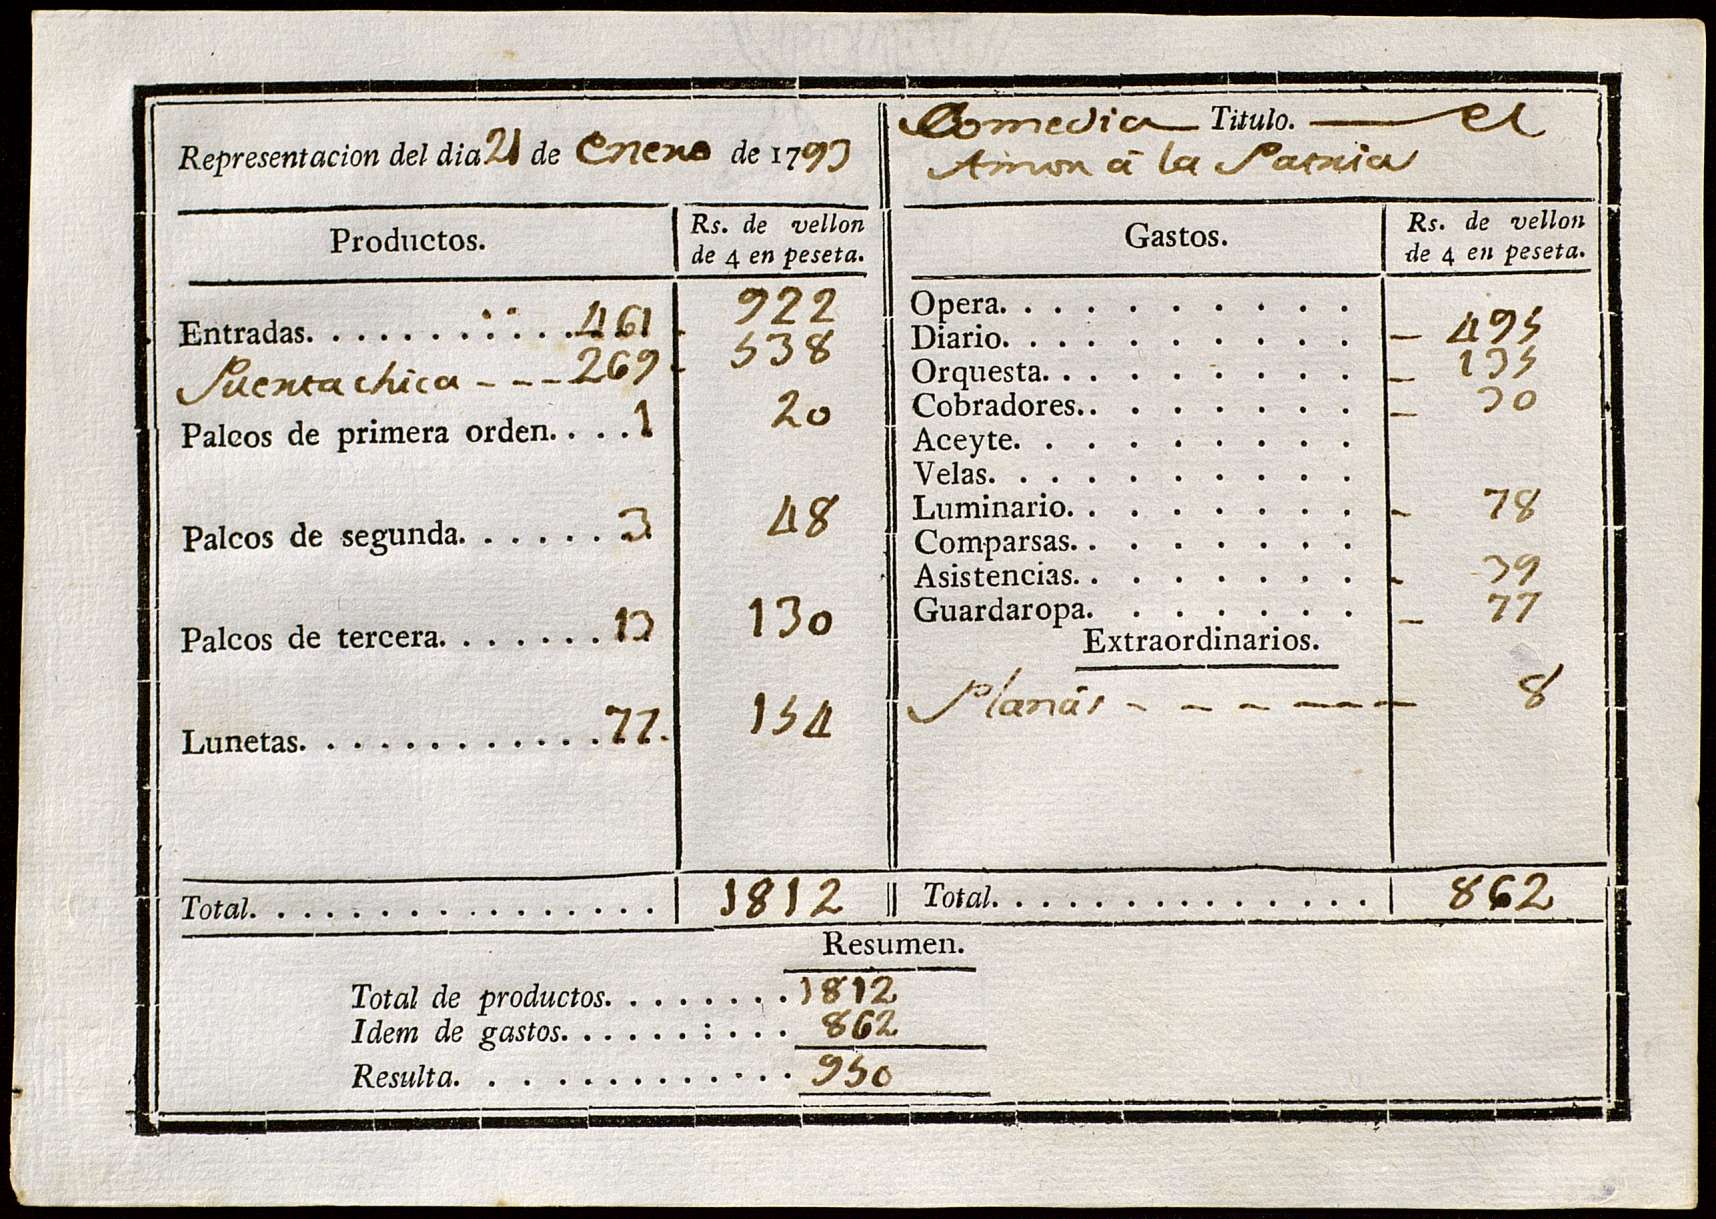 Representacion del dia 21 de Enero de 1793
Comedia Titulo. el
Amor â la Patria
Productos.
Rs. de vellon
de 4 en peseta.
Entradas. . . . . . . . . . . 461 922
Puerta chica - - - 269 538
Palcos de primera orden. . . . 1 20
Palcos de segunda. . . . . . . 3 48
Palcos de tercera. . . . . . . . 13 130
Lunetas. . . . . . . . . . . . . 77. 154
Total. . . . . . . . . . . . . . . . . 1812
Gastos.
Rs. de vellon
de 4 en peseta.
Opera. . . . . . . . . .
Diario. . . . . . . . . . - 495
Orquesta. . . . . . . . . - 135
Cobradores. . . . . . . . - 30
Aceyte. . . . . . . . . .
Velas. . . . . . . . . . .
Luminario. . . . . . . . - 78
Comparsas. . . . . . . .
Asistencias. . . . . . . . - 39
Guardaropa. . . . . . . - 77
Extraordinarios.
Planâs - - - - - - - 8
Total. . . . . . . . . . . . . . . . 862
Resumen.
Total de productos. . . . . . . . 1812
Idem de gastos. . . . . . : . . . 862
Resulta. . . . . . . . . . . . . 950